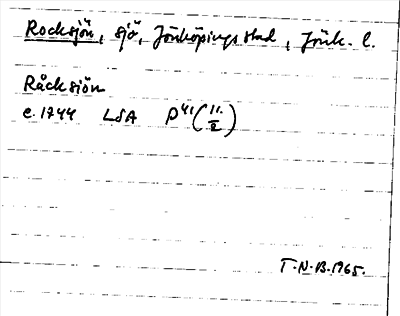 Rocksjön, sjö, Jönköpings stad, Jönk. l.
Råcksjön
c. 1744 LSA P41 (11./2)
T.N.B. 1965.